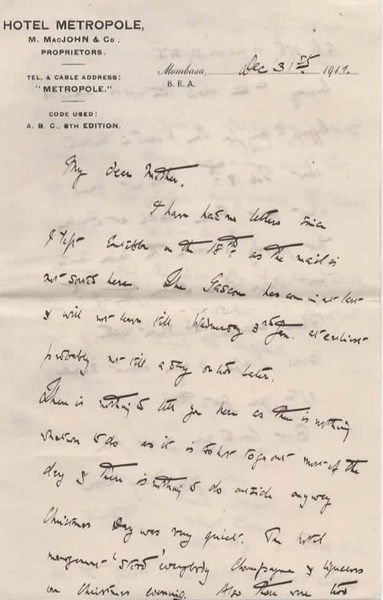 HOTEL METROPOLE,
M. MACJOHN & Co,
PROPRIETORS.
TEL. & CABLE ADDRESS:
"METROPOLE."
CODE USED:
A. B. C., 5TH EDITION.
Mombasa, Dec 31st 191
B. E. A.
My dear Mother,
I have had no letters since
I left on the 18th as the mail is
not sorted here. The Gascon has come in at last
& will not leave till Wednesday 3rd Jan. at earliest
probably not till a day or two later.
There is nothing to tell you here as there is nothing
whatever to do as it is too hot to go out most of the
day & there is nothing to do outside anyway
Christmas Day was very quiet. The hotel
management "stood" everybody Champagne & liqueurs
on Christmas evening. Also there were two